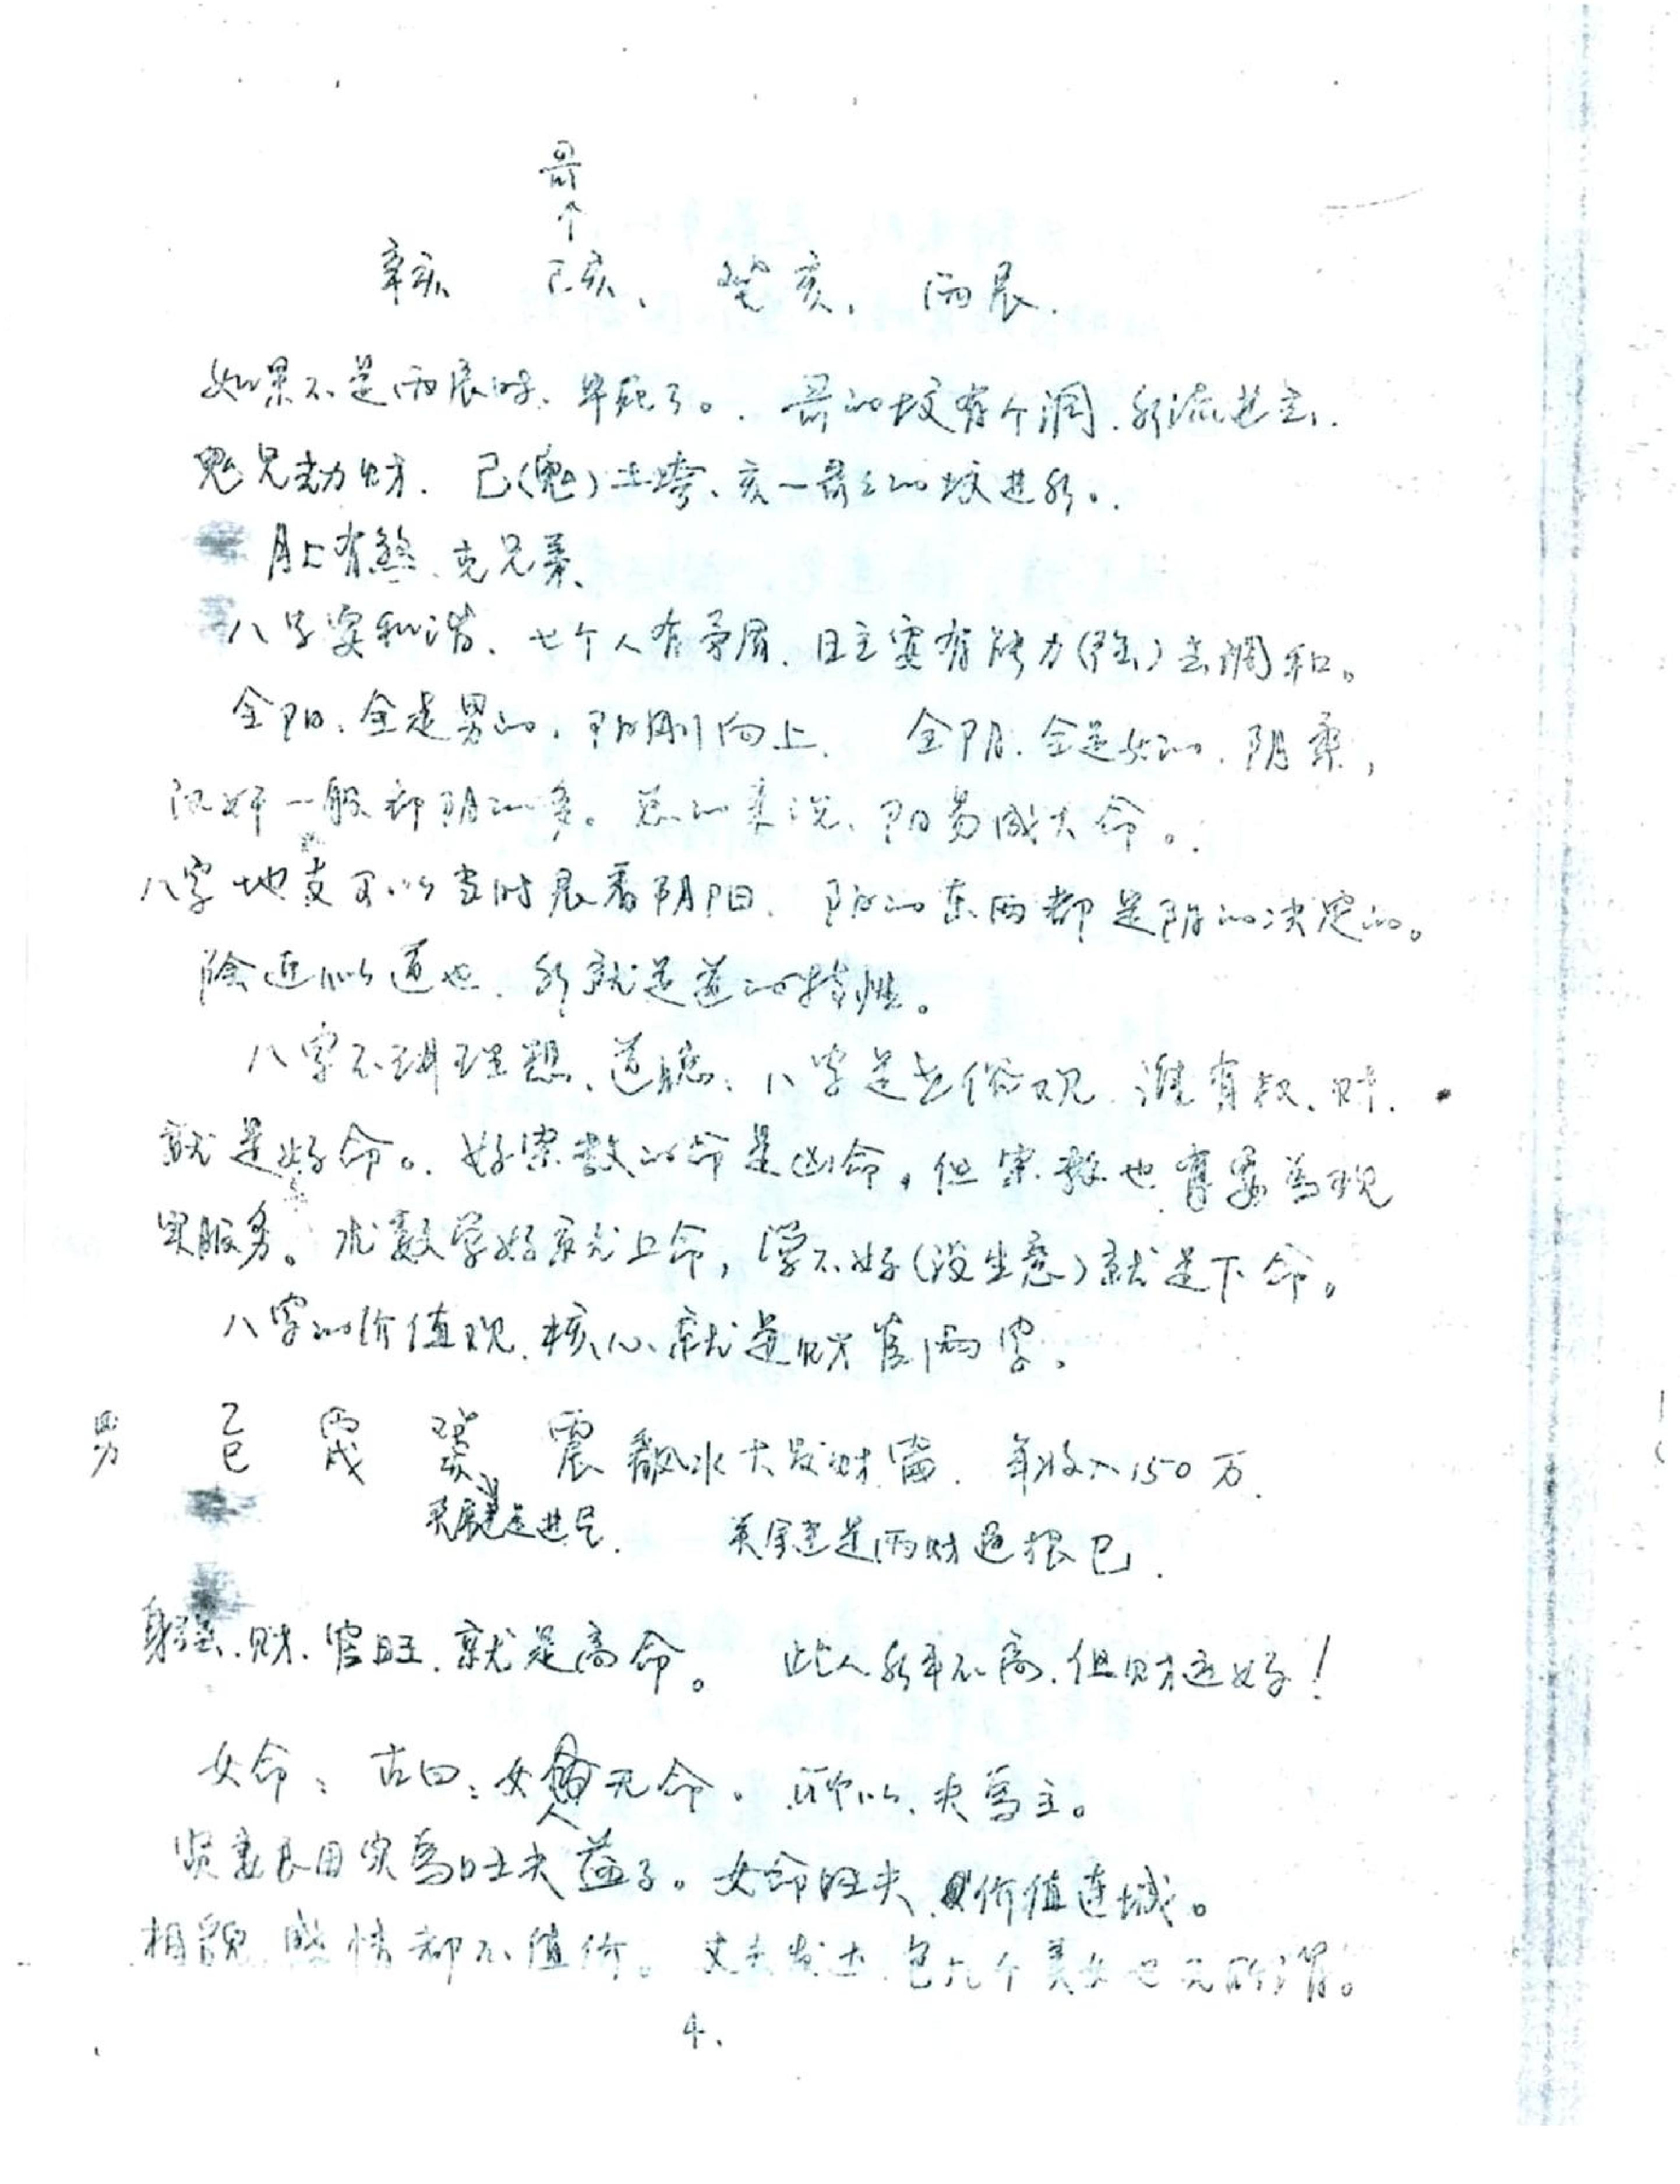 哥
↑
辛亥 己亥、 癸亥, 丙辰.
如果不是丙辰时、早死了。. 哥的坟有个洞. 水流进去.
鬼兄劫财. 己(鬼)土垮、亥一哥哥的坟进水。.
月上有煞、克兄弟、
八字要和谐、七个人有矛盾、日主要有能力(强)去调和。
全阳、全是男的, 阳刚向上. 全阴. 全是女的. 阴柔,
汉奸一般都阴的多。总的来说、阳易成大命。.
八字地支可以当时辰看阴阳. 阳的东西都是阴的决定的。
阴近似道也. 水就是道的特性。
八字不讲理想、道德; 八字是世俗观 谁有权、财.
就是好命。. 好宗教的命是凶命, 但宗教也有要為现
实服务。术数学好就上命, 学不好(没生意)就是下命。
八字的价值观. 核心、就是财官两字。
男 乙巳 丙戌 癸亥 丙辰 风水大发财富. 年收入150万.
关键是进气. 关键是丙财通根巳.
身强、财、官旺. 就是高命。 此人水平不高. 但财运好!
女命: 古曰: 女人无命。 所以、夫為主。
贤妻良母实為旺夫益子。女命旺夫、价值连城。
相貌 感情都不值价。丈夫发达. 包几个美女也无所谓。
4.